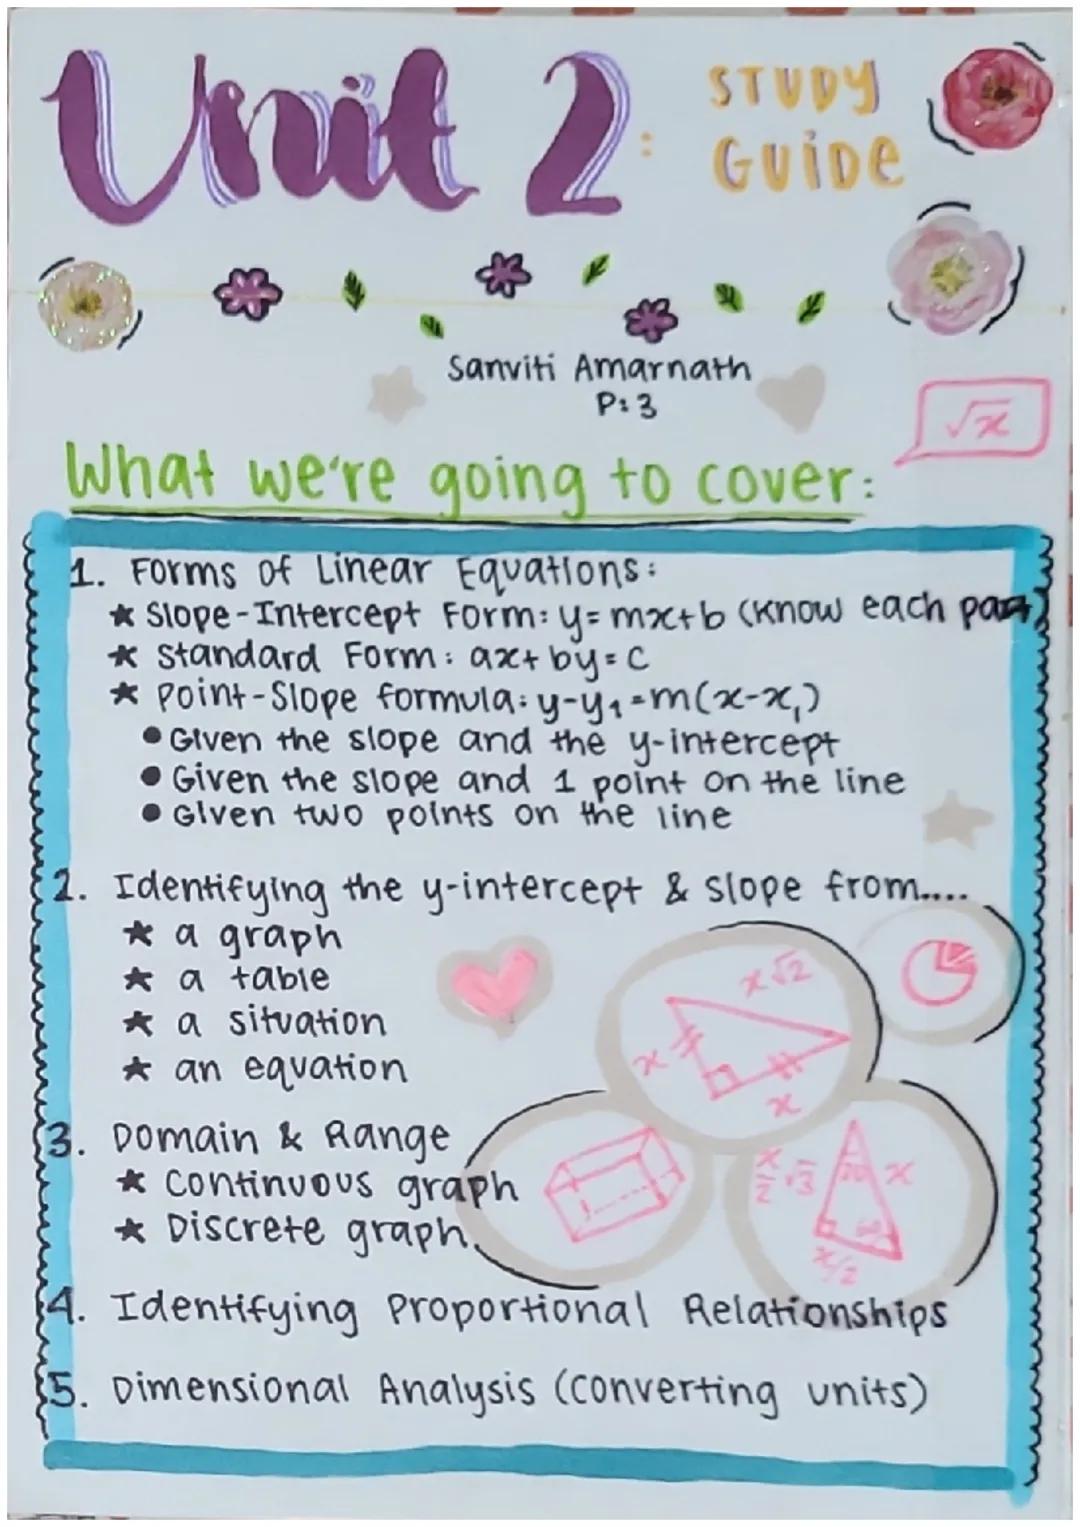 Unit 2: STUDY
GUiDe
Sanviti Amarnath
P: 3
√x
What we're going to cover:
1. Forms of Linear Equations:
★ Slope-Intercept Form: y=mx+b (Know each part)
★ Standard Form: ax+by=c
★ Point-Slope formula: y-y₁=m(x-x₁)
• Given the slope and the y-intercept
• Given the slope and 1 point on the line
• Given two points on the line
2. Identifying the y-intercept & slope from....
★ a graph
★ a table
★ a situation
★ an equation
x√2
x
x
3. Domain & Range
★ Continuous graph
★ Discrete graph
x/2 √3
x
x/2
4. Identifying Proportional Relationships
5. Dimensional Analysis (converting units)